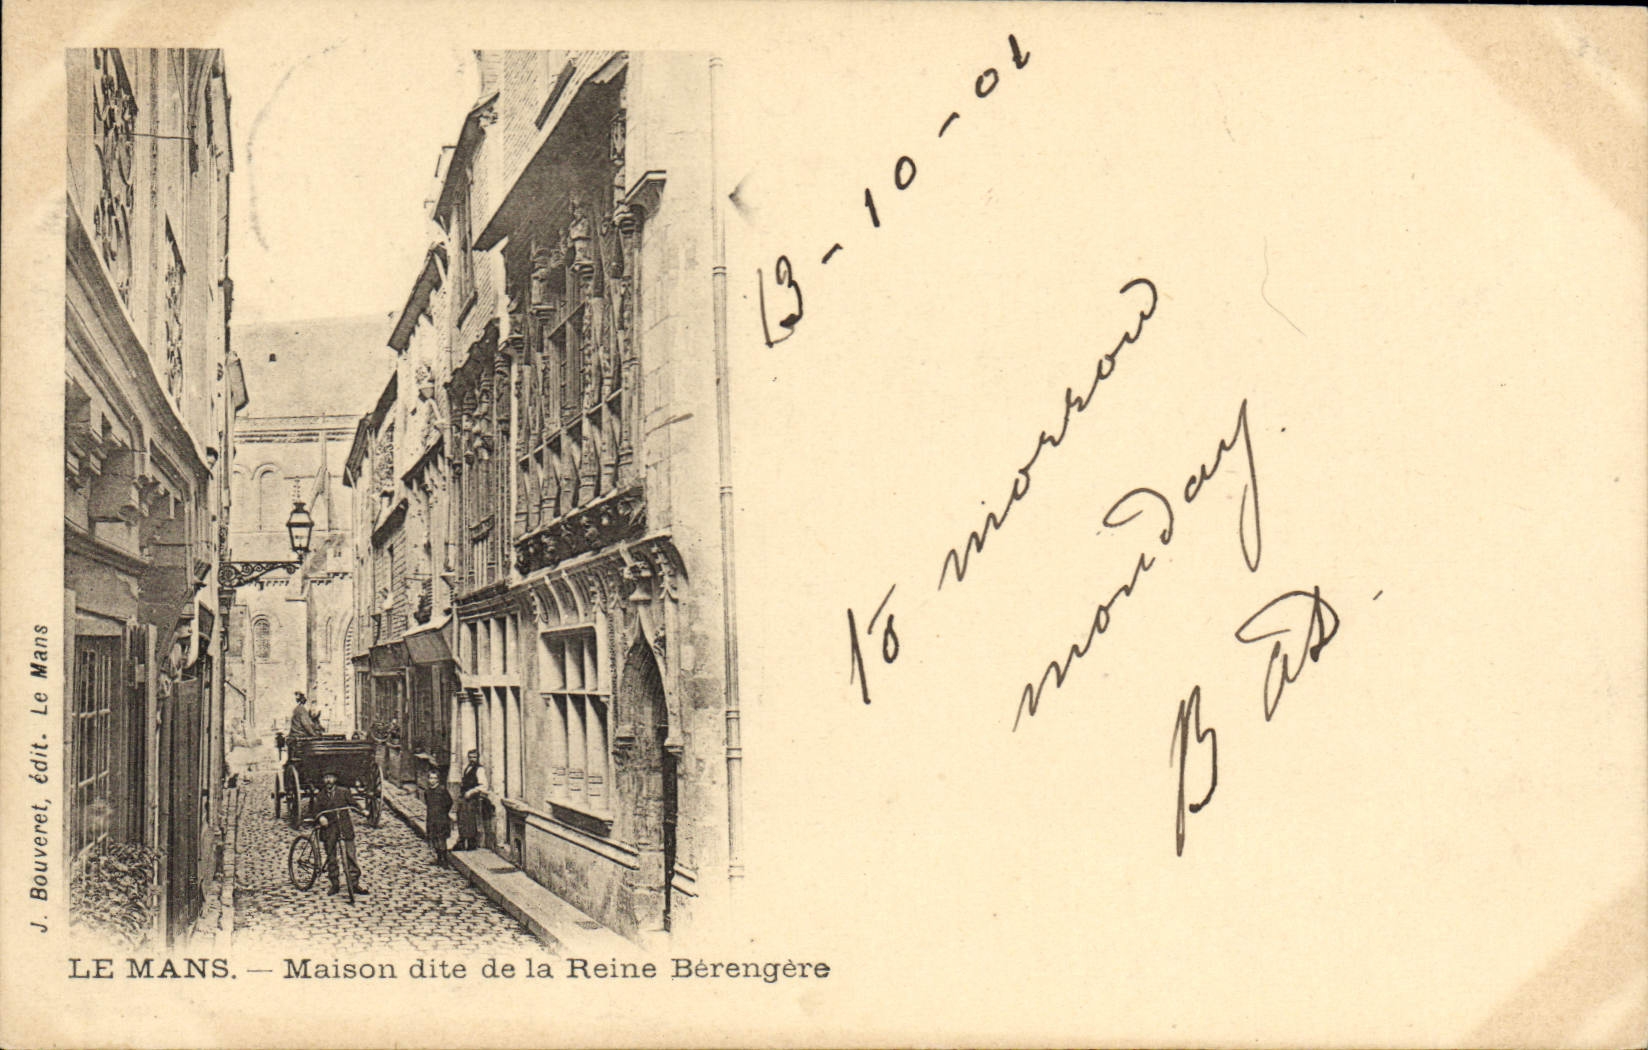 13-10-01
to morrow
monday.
LE MANS. — Maison dite de la Reine Bérengère
J. Bouveret, édit. Le Mans